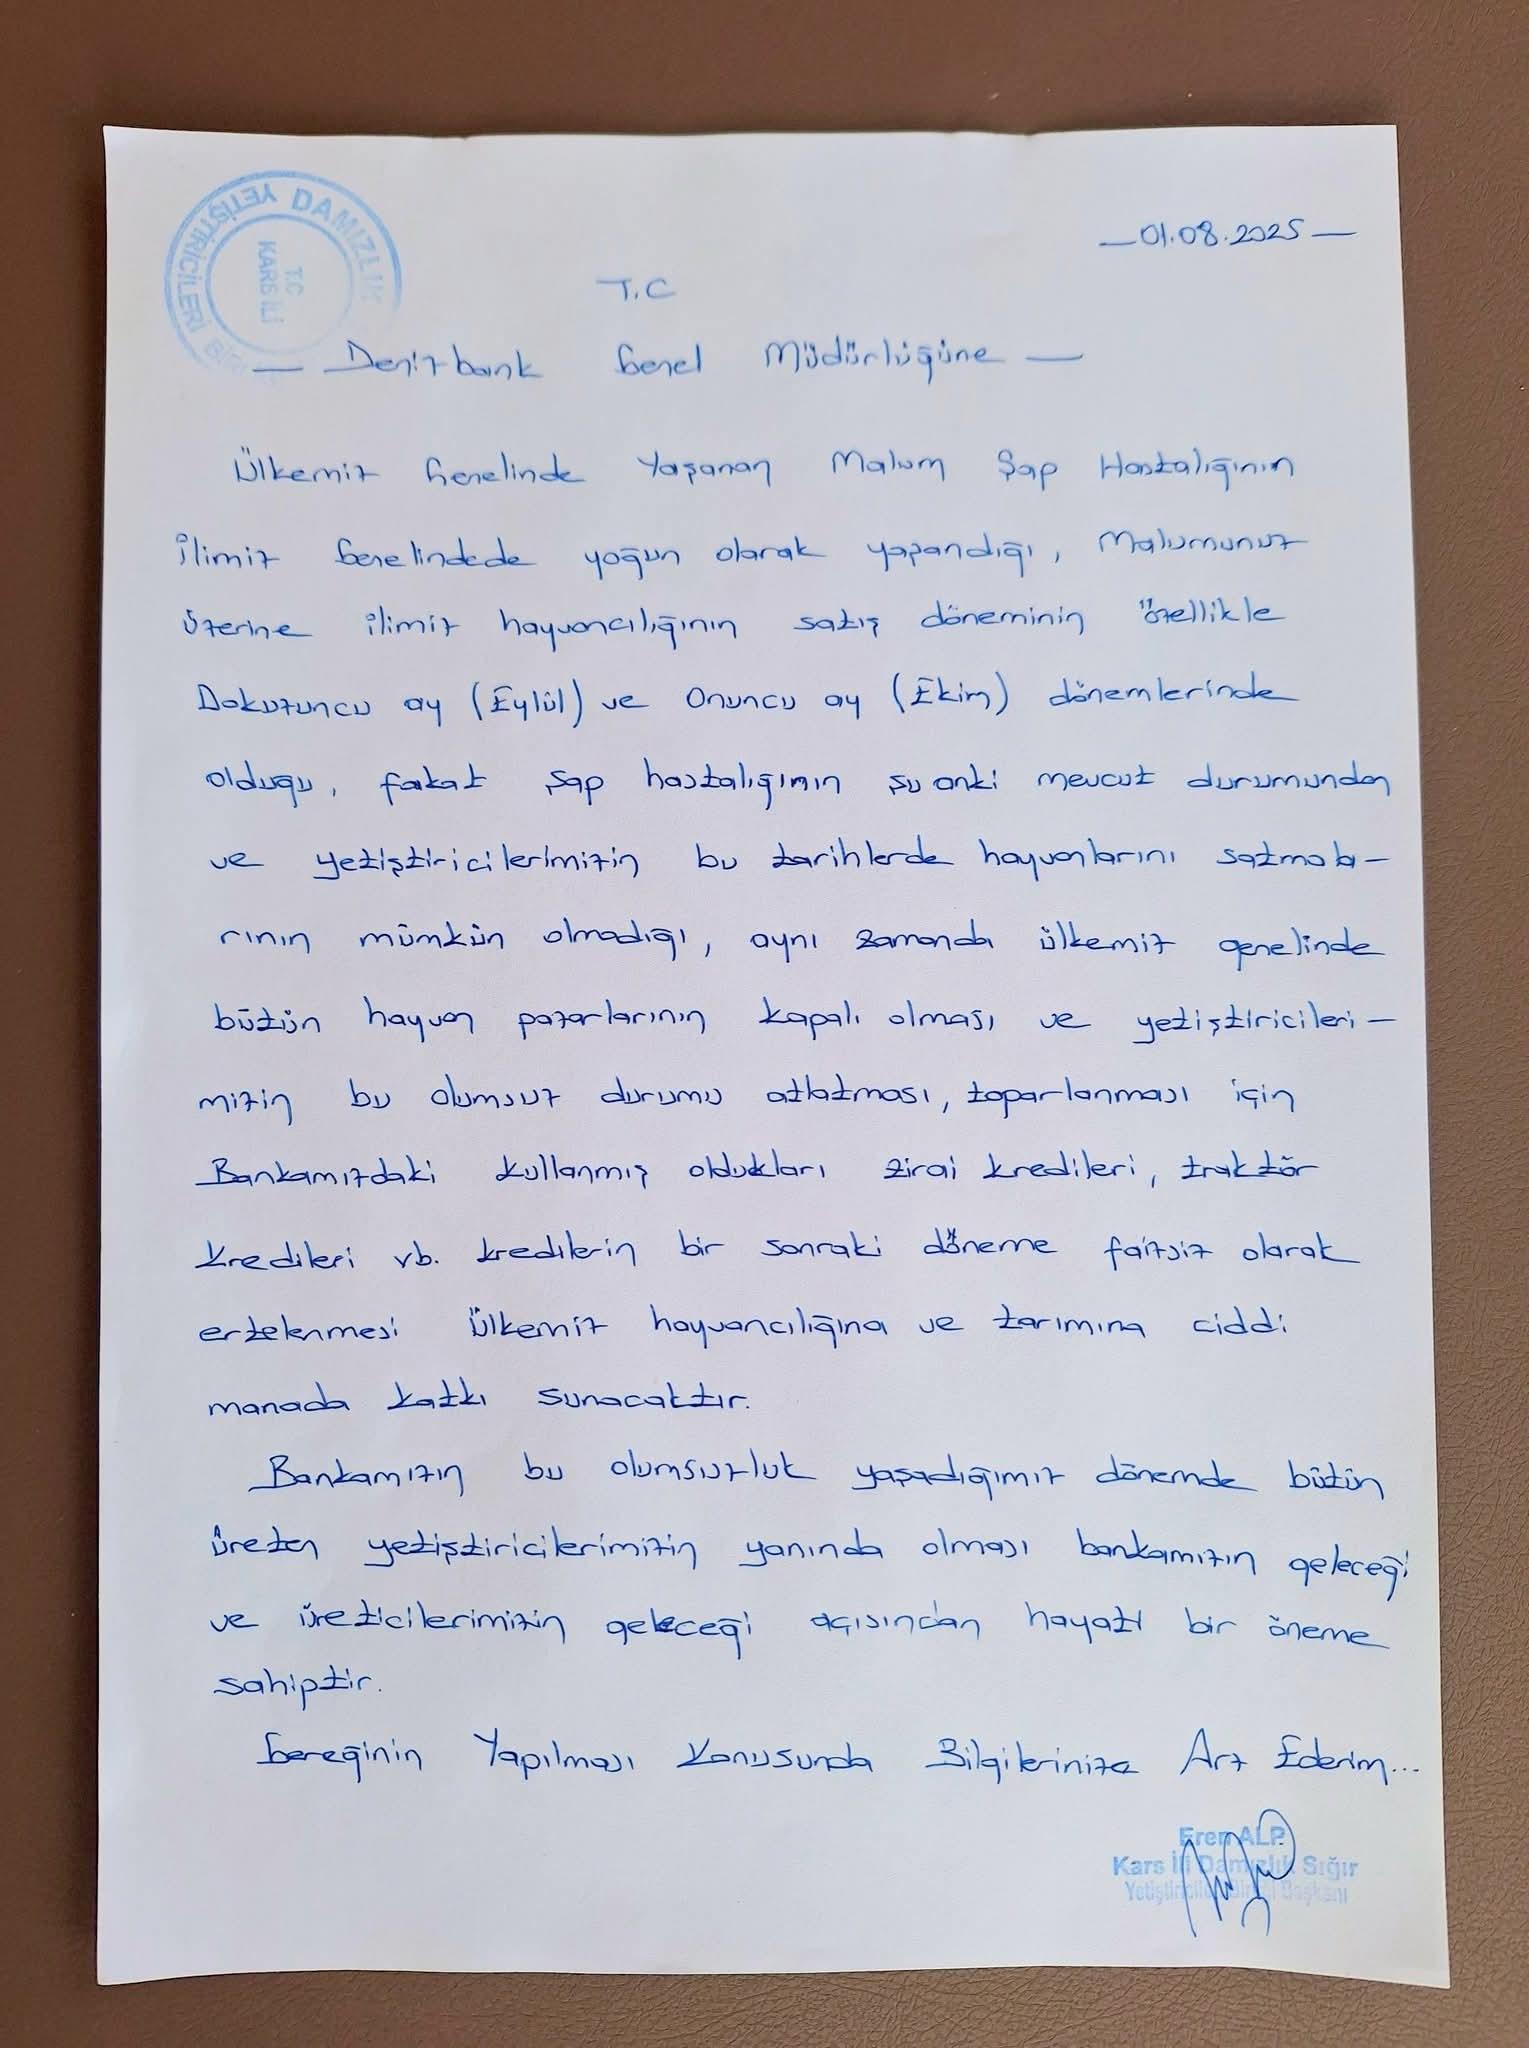 DAMIZLIK
YETİŞTİRİCİLERİ
T.C
KARS İLİ
01.08.2025
T.C
Denizbank Genel Müdürlüğüne
Ülkemiz Genelinde Yaşanan Malum Şap Hastalığının
ilimiz Genelindede yoğun olarak yaşandığı, Malumunuz
üzerine ilimiz hayvancılığının satış döneminin özellikle
Dokuzuncu ay (Eylül) ve Onuncu ay (Ekim) dönemlerinde
olduğu, fakat şap hastalığının şu anki mevcut durumundan
ve yetiştiricilerimizin bu tarihlerde hayvanlarını satmala-
rının mümkün olmadığı, aynı zamanda ülkemiz genelinde
bütün hayvan pazarlarının kapalı olması ve yetiştiricileri-
mizin bu olumsuz durumu atlatması, toparlanması için
Bankamızdaki kullanmış oldukları zirai kredileri, traktör
kredileri vb. kredilerin bir sonraki döneme faizsiz olarak
ertelenmesi ülkemiz hayvancılığına ve tarımına ciddi
manada katkı sunacaktır.
Bankamızın bu olumsuzluk yaşadığımız dönemde bütün
üreten yetiştiricilerimizin yanında olması bankamızın geleceği
ve üreticilerimizin geleceği açısından hayati bir öneme
sahiptir.
Gereğinin Yapılması Konusunda Bilgilerinize Arz Ederim...
Eren ALP
Kars İli Damızlık Sığır
Yetiştiricileri Birliği Başkanı